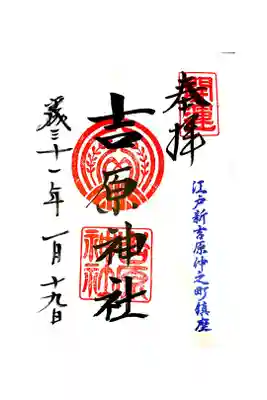 開運
奉拝
江戸新吉原仲之町鎮座
吉原神社
吉原神社
平成三十一年 一月 十九日